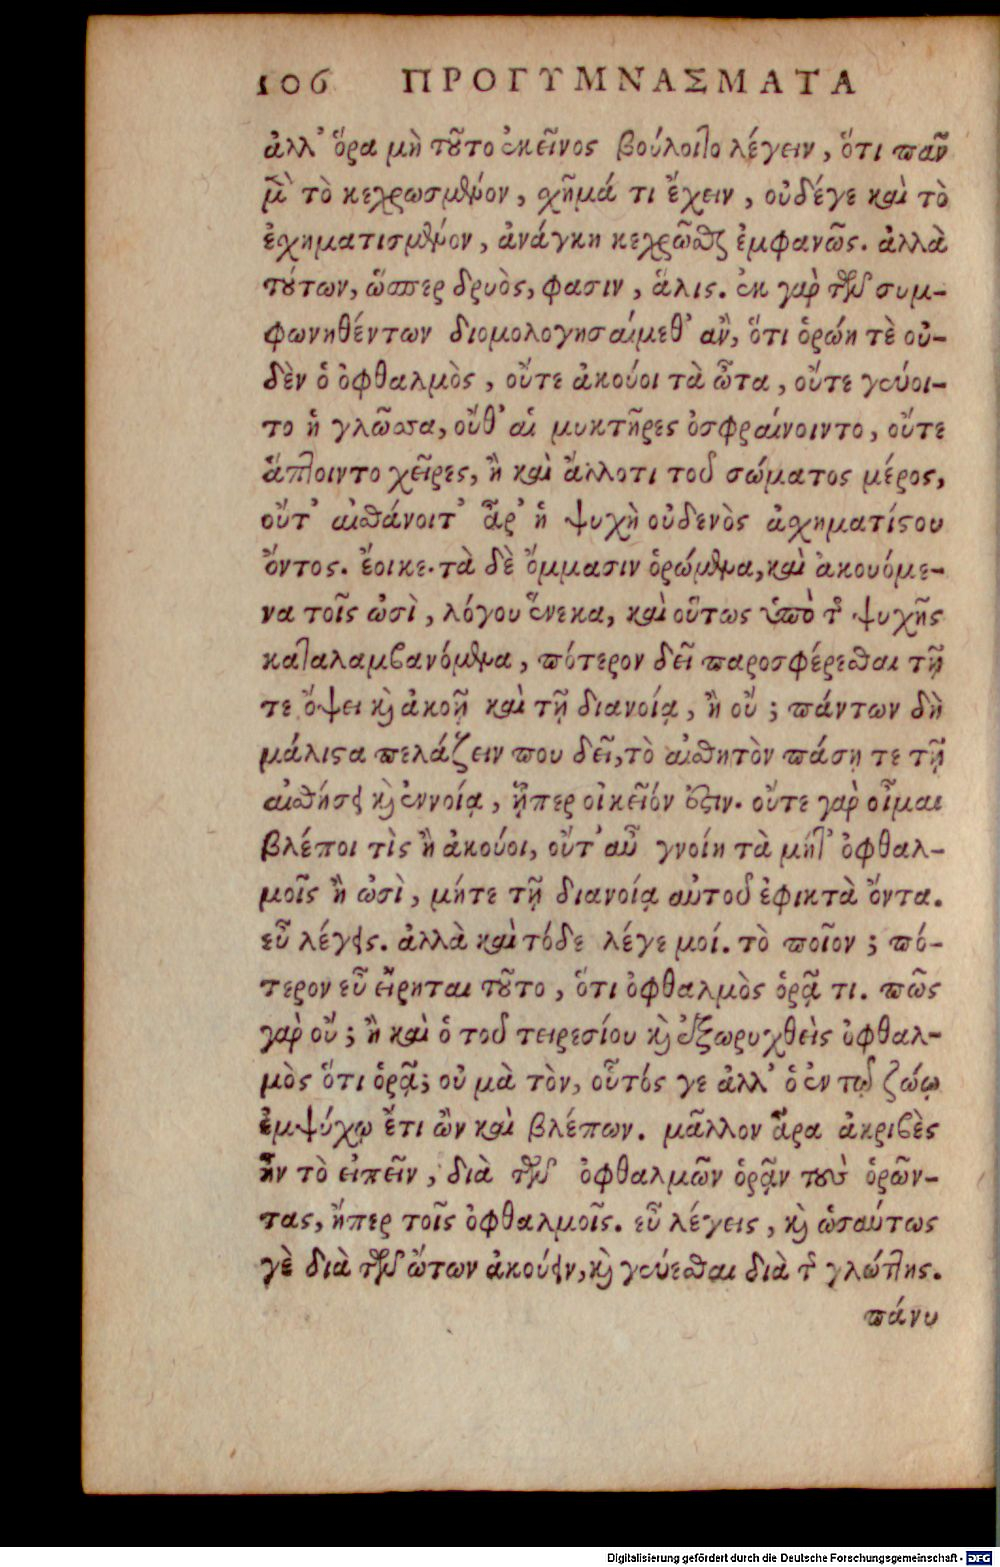 106 ΠΡΟΓΥΜΝΑΣΜΑΤΑ
ἀλλ' ὅρα μὴ τοῦτο ἐκεῖνος βούλοιτο λέγειν, ὅτι πᾶν
μὲν τὸ κεχρωσμένον, σχῆμά τι ἔχειν, οὐδέγε καὶ τὸ
ἐσχηματισμένον, ἀνάγκη κεχρῶσθαι ἐμφανῶς. ἀλλὰ
τούτων, ὥσπερ δρυὸς, φασιν, ἅλις. ἐκ γὰρ τῶν συμ-
φωνηθέντων διομολογησαίμεθ' ἂν, ὅτι ὁρώη τὲ οὐ-
δὲν ὁ ὀφθαλμὸς, οὔτε ἀκούοι τὰ ὦτα, οὔτε γεύοι-
το ἡ γλῶσσα, οὔθ' αἱ μυκτῆρες ὀσφραίνοιντο, οὔτε
ἅπτοιντο χεῖρες, ἢ καὶ ἄλλοτι τοῦ σώματος μέρος,
οὔτ' αἰσθάνοιτ' ἆρ' ἡ ψυχὴ οὐδενὸς ἀσχηματίστου
ὄντος. ἔοικε. τὰ δὲ ὄμμασιν ὁρώμενα, καὶ ἀκουόμε-
να τοῖς ὠσὶ, λόγου ἕνεκα, καὶ οὕτως ὑπὸ τῆς ψυχῆς
καταλαμβανόμενα, πότερον δεῖ παροσφέρεσθαι τῇ
τε ὄψει καὶ ἀκοῇ καὶ τῇ διανοίᾳ, ἢ οὔ; πάντων δὴ
μάλιστα πελάζειν που δεῖ, τὸ αἰσθητὸν πάσῃ τε τῇ
αἰσθήσει καὶ ἐννοίᾳ, ᾗπερ οἰκεῖόν ἐστιν. οὔτε γὰρ οἶμαι
βλέποι τὶς ἢ ἀκούοι, οὔτ' αὖ γνοίη τὰ μήτ' ὀφθαλ-
μοῖς ἢ ὠσὶ, μήτε τῇ διανοίᾳ αὐτοῦ ἐφικτὰ ὄντα.
εὖ λέγεις. ἀλλὰ καὶ τόδε λέγε μοί. τὸ ποῖον; πό-
τερον εὖ εἴρηται τοῦτο, ὅτι ὀφθαλμὸς ὁρᾷ τι. πῶς
γὰρ οὔ; ἢ καὶ ὁ τοῦ τειρεσίου καὶ ἐξωρυχθεὶς ὀφθαλ-
μὸς ὅτι ὁρᾷ; οὐ μὰ τὸν, οὗτός γε ἀλλ' ὁ ἐν τῷ ζώῳ
ἐμψύχῳ ἔτι ὢν καὶ βλέπων. μᾶλλον ἄρα ἀκριβὲς
ἦν τὸ εἰπεῖν, διὰ τῶν ὀφθαλμῶν ὁρᾷν τοὺς ὁρῶν-
τας, ἤπερ τοῖς ὀφθαλμοῖς. εὖ λέγεις, καὶ ὡσαύτως
γὲ διὰ τῶν ὤτων ἀκούειν, καὶ γεύεσθαι διὰ τῆς γλώττης.
πάνυ
Digitalisierung gefördert durch die Deutsche Forschungsgemeinschaft - DFG